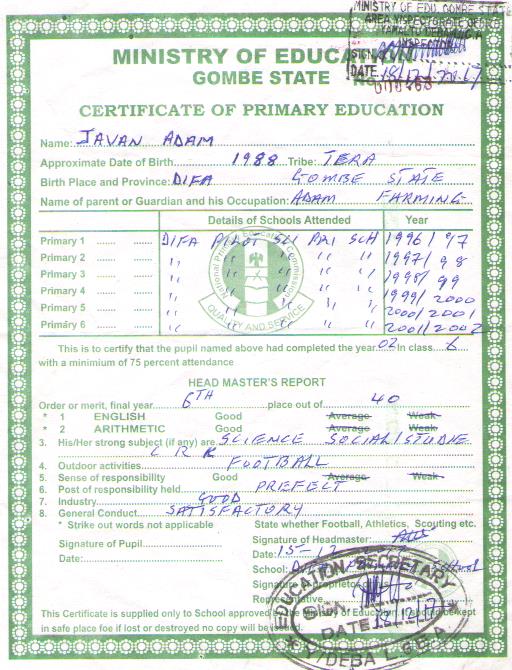 MINISTRY OF EDU. GOMBE STATE
AREA INSPECTORATE OFFICE
YAMALTU DEBA L.G.A
INSPECTOR
SIGN
DATE 18/12/2017
MINISTRY OF EDUCATION
GOMBE STATE NO.
CERTIFICATE OF PRIMARY EDUCATION
Name: JAVAN ADAM
Approximate Date of Birth 1988 Tribe: TERA
Birth Place and Province: DIFA GOMBE STATE
Name of parent or Guardian and his Occupation: ADAM FARMING
Details of Schools Attended Year
Primary 1 DIFA PILOT SCI PRI SCH 1996/97
Primary 2 " " " " " 1997/98
Primary 3 " " " " " 1998/99
Primary 4 " " " " " 1999/2000
Primary 5 " " " " " 2000/2001
Primary 6 " " " " " 2001/2002
National Primary Education Commission
QUALITY AND SERVICE
This is to certify that the pupil named above had completed the year 02 In class 6
with a minimum of 75 percent attendance
HEAD MASTER'S REPORT
Order or merit, final year 6TH place out of 40
* 1 ENGLISH Good Average Weak
* 2 ARITHMETIC Good Average Weak
3. His/Her strong subject (if any) are SCIENCE SOCIAL STUDIE
C R K
4. Outdoor activities FOOTBALL
5. Sense of responsibility Good Average Weak
6. Post of responsibility held PREFECT
7. Industry GOOD
8. General Conduct SATISFACTORY
* Strike out words not applicable State whether Football, Athletics, Scouting etc.
Signature of Pupil Signature of Headmaster:
Date: Date: 15-12
School:
Signature of proprietor
Representative
This Certificate is supplied only to School approved by the Ministry of Education. If should be kept
in safe place foe if lost or destroyed no copy will be issued.
EDUCATION SECRETARY
SIGN
DATE
Y/DEBA L.G.E.A